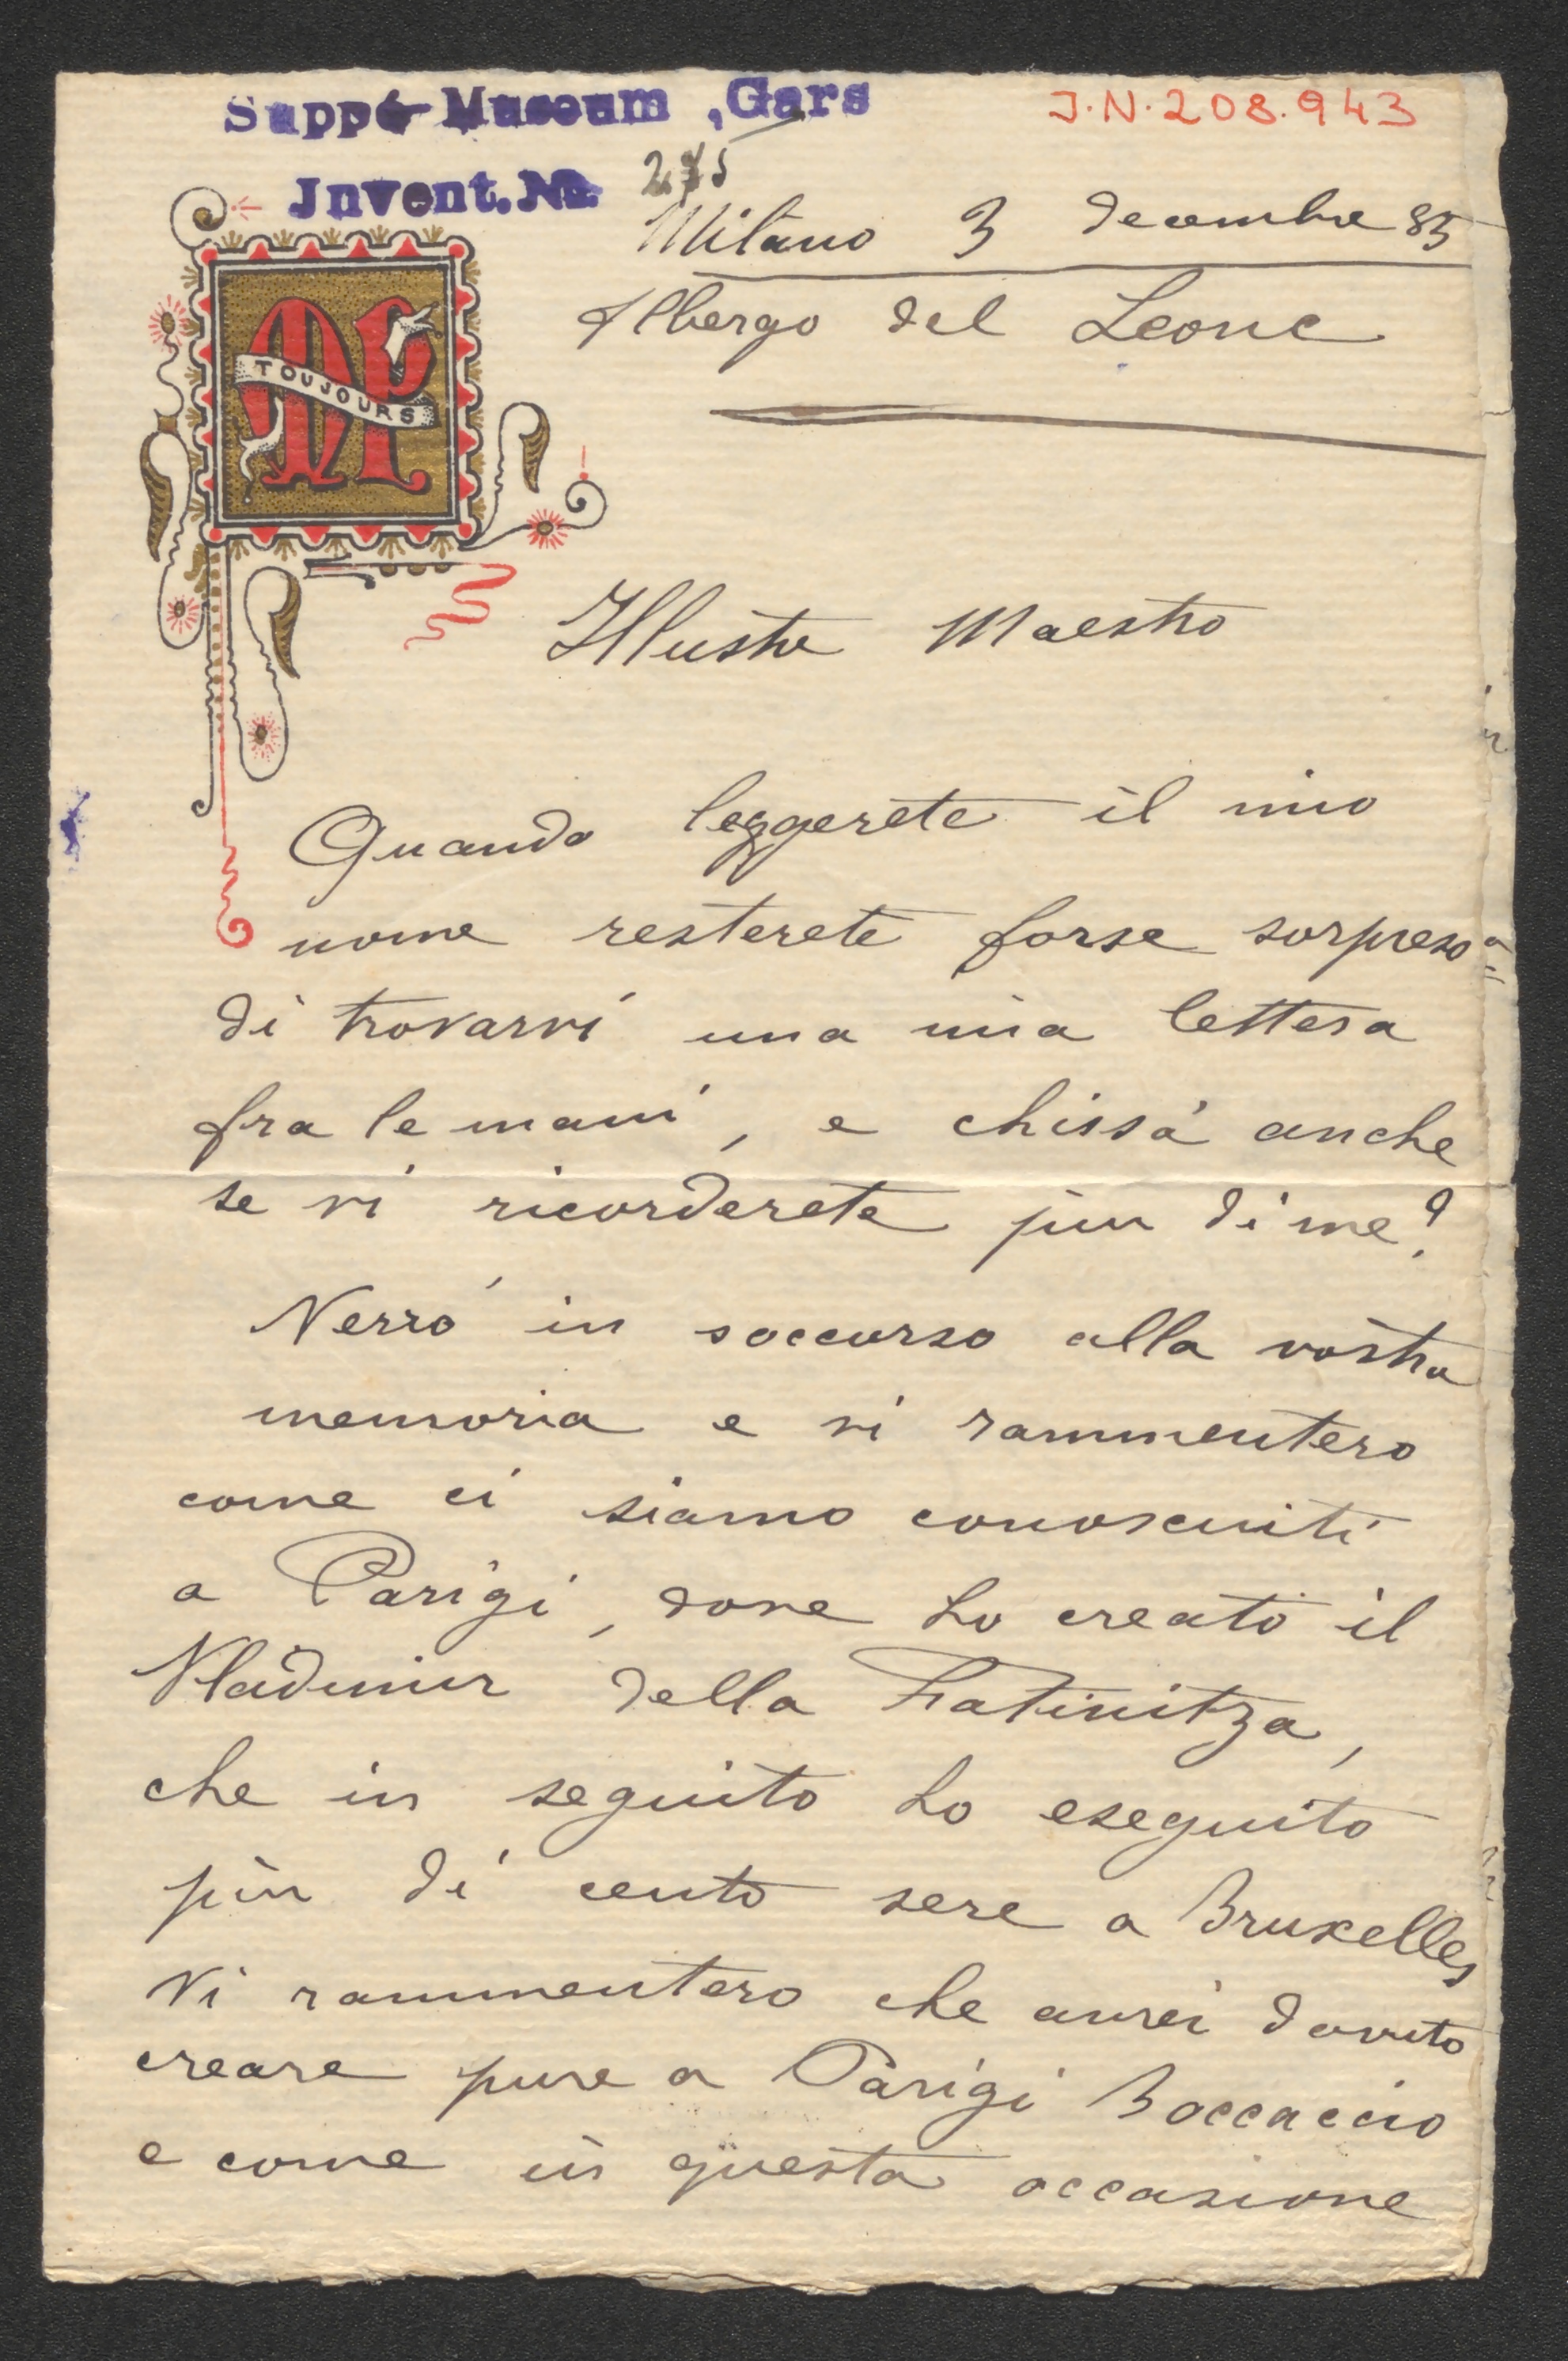 Suppé-Museum, Gars
J.N. 208.943
Invent. No. 275
Milano 3 decembre 85
Albergo del Leone
TOUJOURS
Illustre Maestro
Quando leggerete il mio
nome resterete forse sorpreso
di trovarvi una mia lettera
fra le mani, e chissà anche
se vi ricorderete più di me?
Verrò in soccorso alla vostra
memoria e vi rammentero
come ci siamo conosciuti
a Parigi, dove ho creato il
Vladimir della Fatinitza,
che in seguito ho eseguito
più di cento sere a Bruxelles
Vi rammentero che avrei dovuto
creare pure a Parigi Boccaccio
e come in questa occasione